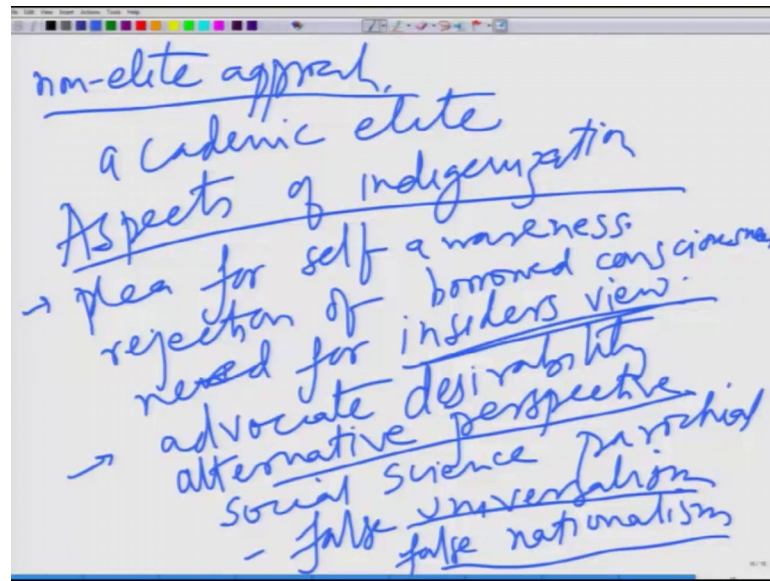 File Edit View Insert Actions Tools Help
non-elite approach,
academic elite
Aspects of indigenization
→ plea for self awareness.
rejection of borrowed consciousness
need for insiders view.
→ advocate desirability
alternative perspective
social science parochial
- false universalism
false nationalism